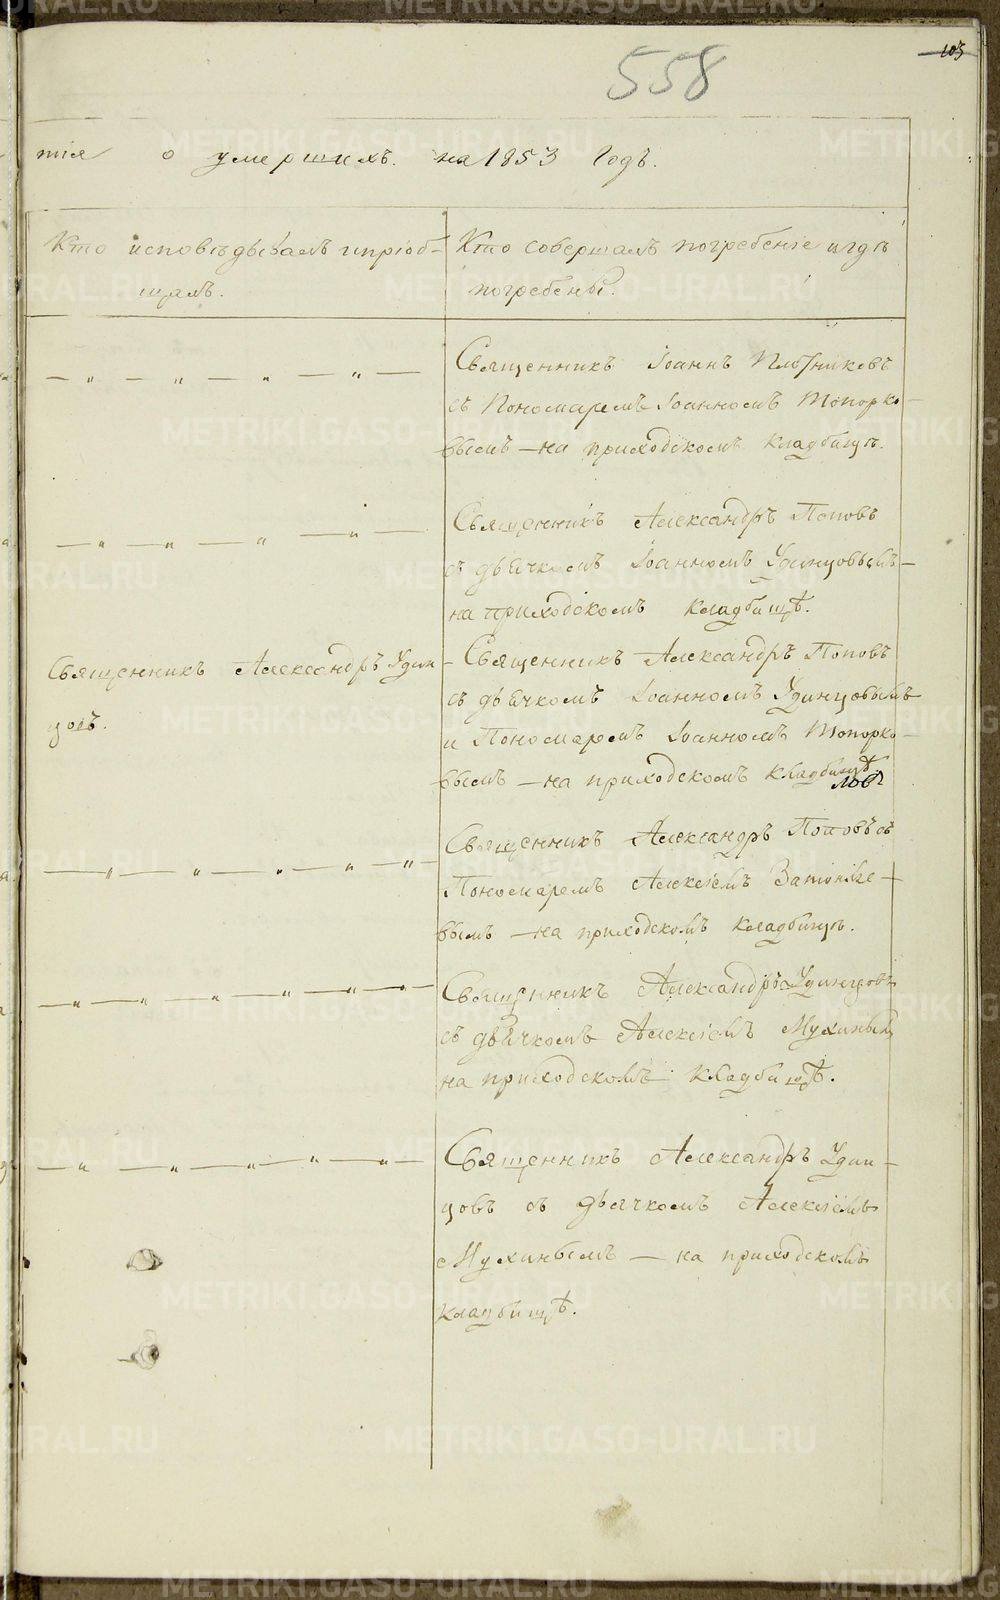 103
558
тія о умершихъ. на 1853 годъ.
Кто исповѣдывалъ и пріоб-
щалъ.
Кто совершалъ погребеніе и гдѣ
погребены.
— „ — „ — „ — „ —
Священникъ Іоаннъ Плотниковъ
съ Пономаремъ Іоанномъ Топорко-
вымъ — на приходскомъ кладбищѣ.
— „ — „ — „ — „ —
Священникъ Александръ Поповъ
съ дьячкомъ Іоанномъ Удинцовымъ —
на приходскомъ кладбищѣ.
Священникъ Александръ Удин-
цовъ.
Священникъ Александръ Поповъ
съ дьячкомъ Іоанномъ Удинцовымъ
и Пономаремъ Іоанномъ Топорко-
вымъ — на приходскомъ кладбищѣ.
— „ — „ — „ — „ — „
Священникъ Александръ Поповъ съ
Пономаремъ Алексіемъ
вымъ — на приходскомъ кладбищѣ.
— „ — „ — „ — „ — „ — „ —
Священникъ Александръ Удинцовъ
съ дьячкомъ Алексіемъ Мухинымъ
на приходскомъ кладбищѣ.
— „ — „ — „ — „ — „ —
Священникъ Александръ Удин-
цовъ съ дьячкомъ Алексіемъ
Мухинымъ — на приходскомъ
кладбищѣ.
METRIKI.GASO-URAL.RU